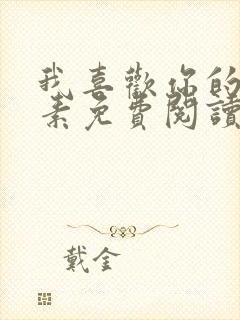 我喜歡你的
素免費閱讀
戴金